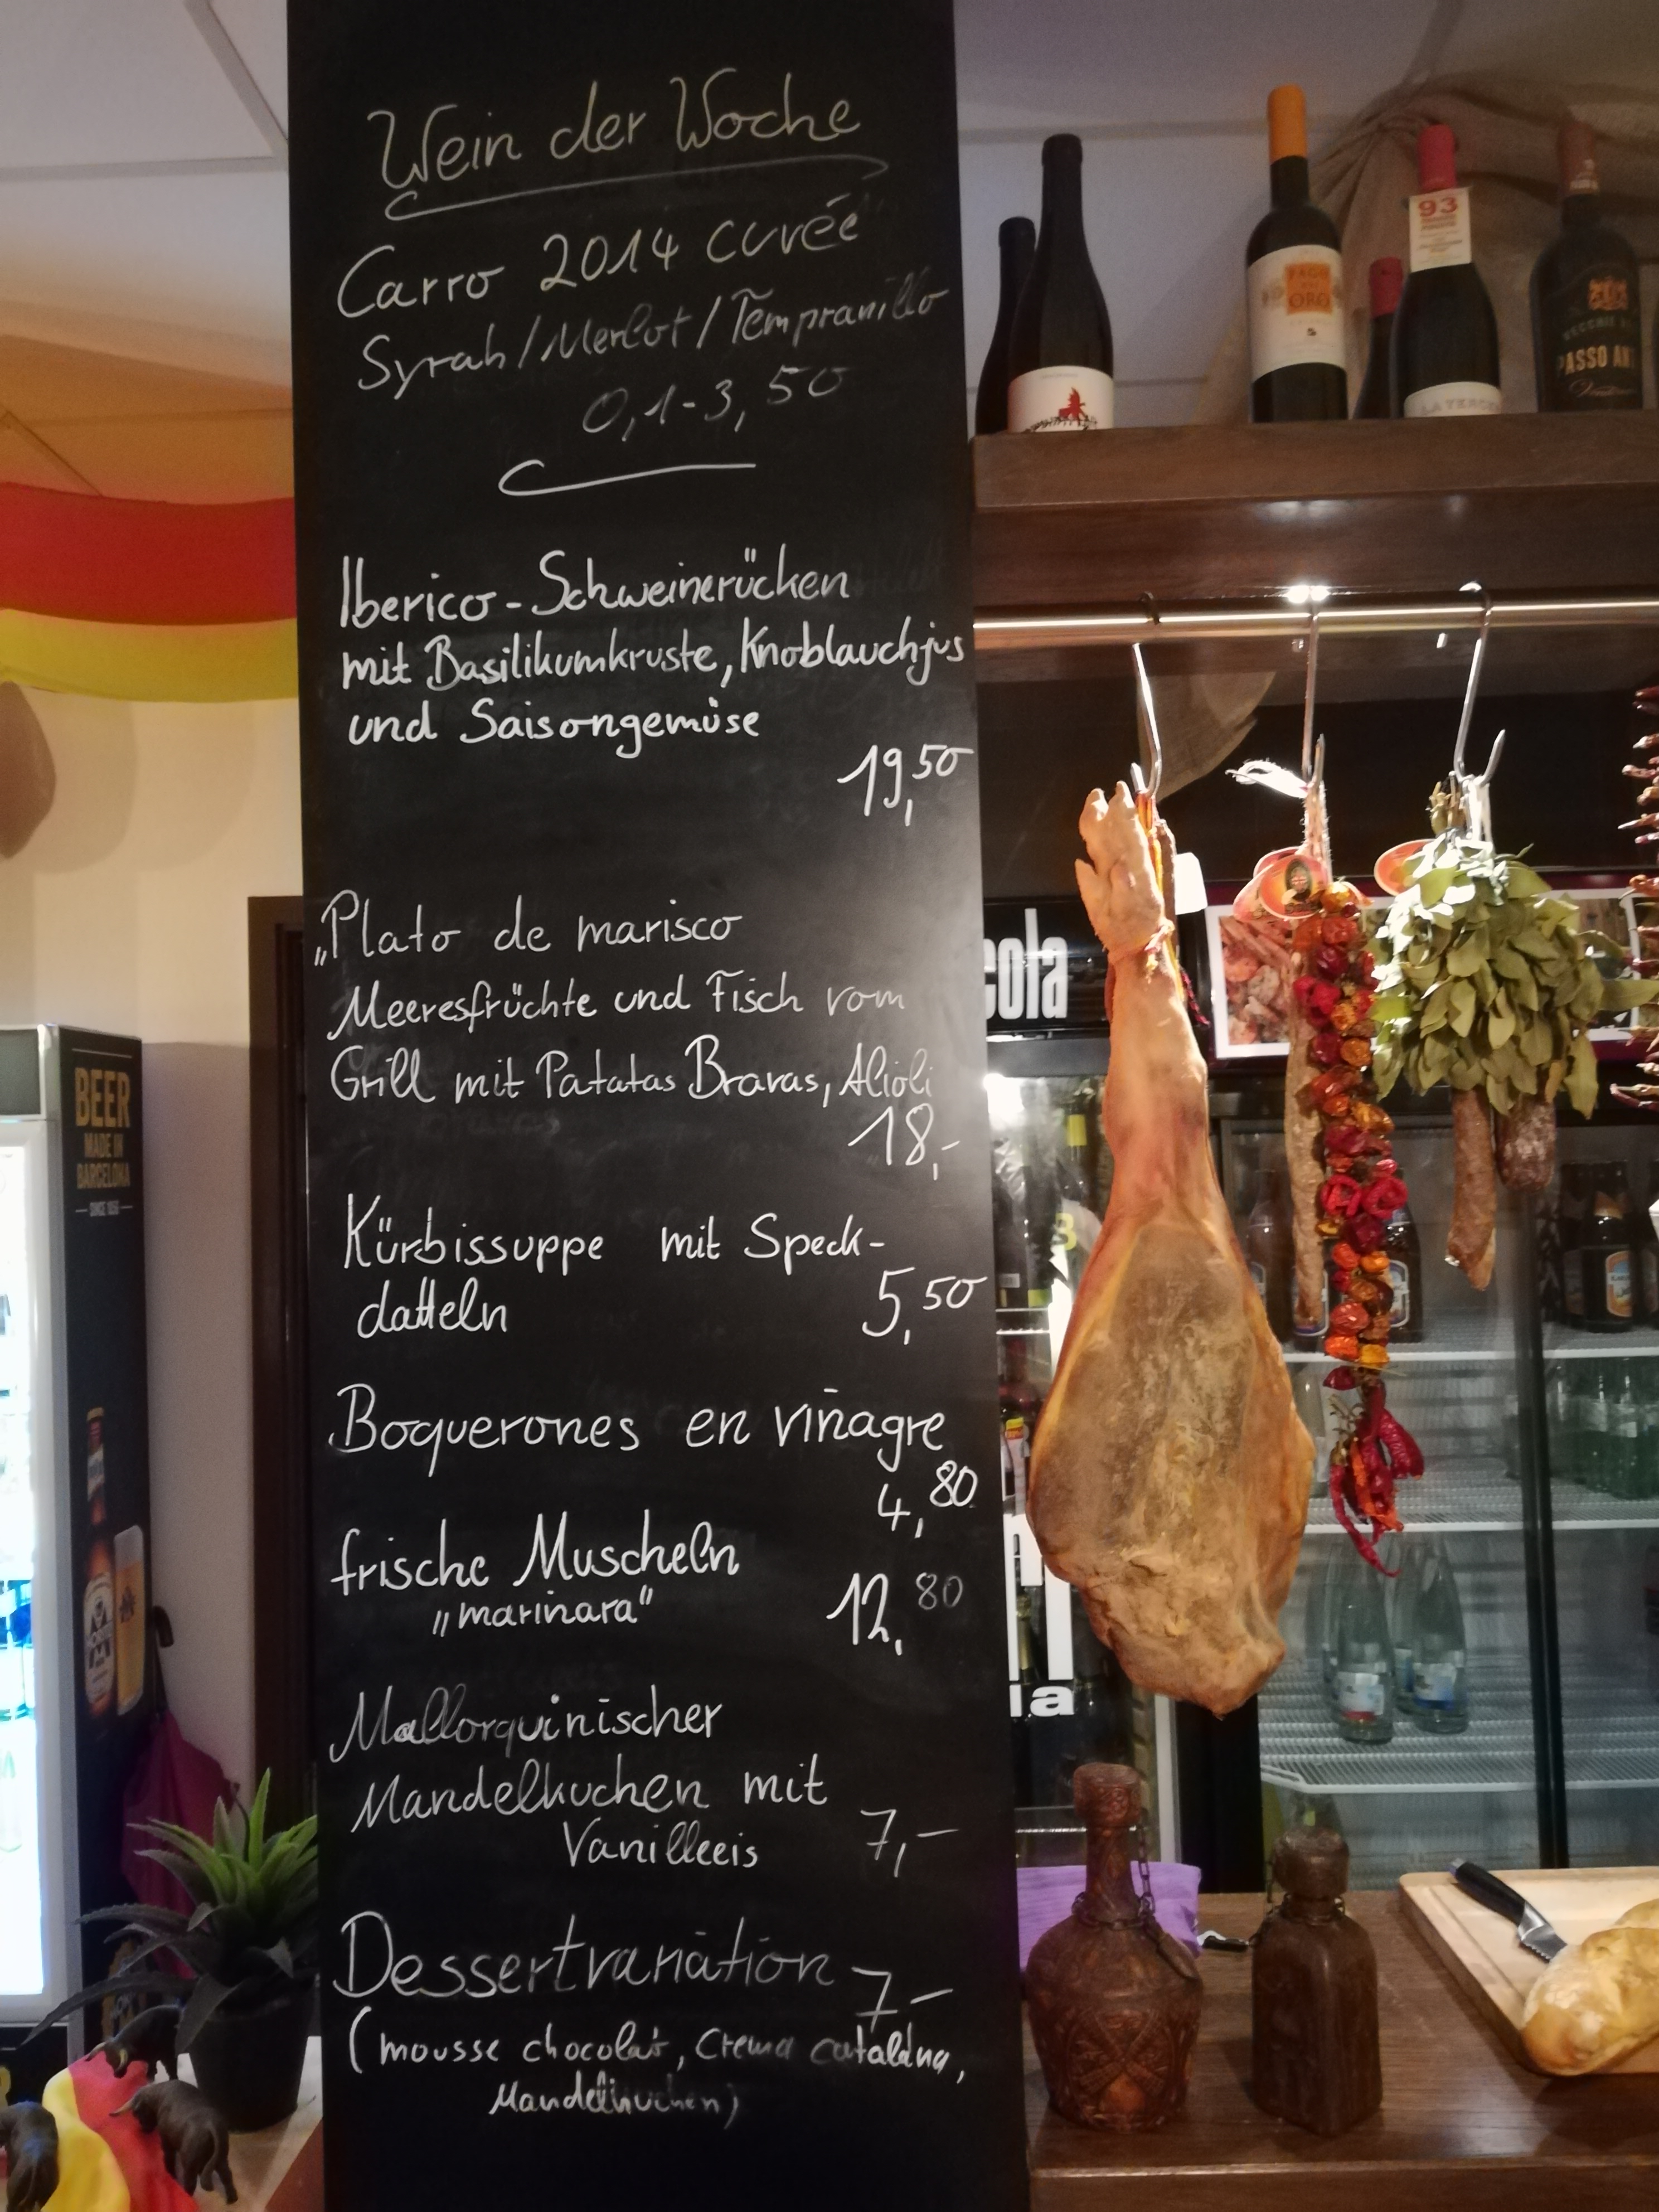 Wein der Woche
Carro 2014 cuvée
Syrah/Merlot/Tempranillo
0,1-3,50
Iberico-Schweinerücken
mit Basilikumkruste, Knoblauchjus
und Saisongemüse
19,50
„Plato de marisco
Meeresfrüchte und Fisch vom
Grill mit Patatas Bravas, Alioli
18,-
Kürbissuppe mit Speck-
datteln
5,50
Boquerones en viñagre
4,80
frische Muscheln
„marinara"
12,80
Mallorquinischer
Mandelkuchen mit
Vanilleeis
7,-
Dessertvariation
7-
(mousse chocolat, Crema catalana,
Mandelkuchen)
BEER
MADE IN
BARCELONA
SINCE 1856
93
PAGO
ORO
PASSO
cola
ia